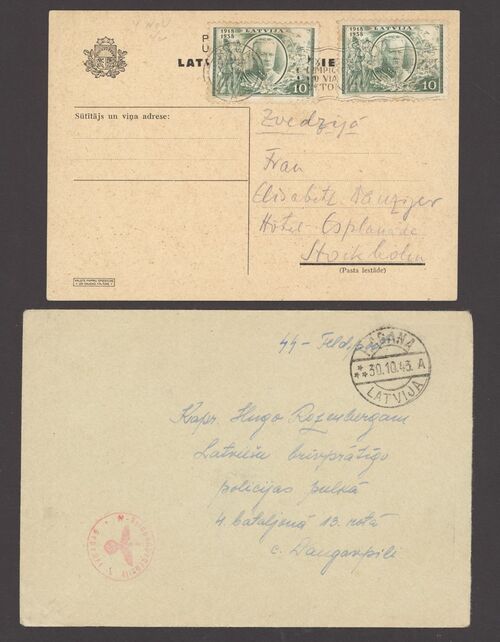 4 Nov
42
LATVIJA
1918
1938
10
LATVIJA
1918
1938
10
LATV
IE
Sūtītājs un viņa adrese:
Zvedzijā
Frau
Elisabeth Danziger
Hotel Esplanade
Stockholm
(Pasta iestāde)
SS-Feldpost
MADONA
30.10.43. A
LATVIJA
Kapr. Hugo Rozenbergam
Latviešu brīvprātīgo
policijas pulkā
4. bataljonā 13. rotā
c. Daugavpilī